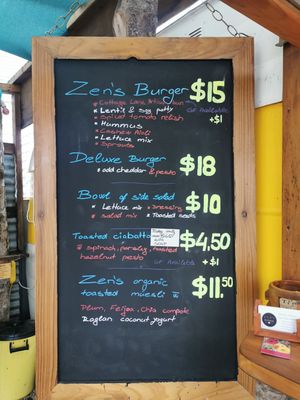 Zen's Burger $15
* Cottage Lane Artisan bun GF Available
* Lentil & nagg patty +$1
* Spiced tomato relish
* Hummus
* Cashew Aioli
* Lettuce mix
* Sprouts
Deluxe Burger $18
* add cheddar & pesto
Bowl of side salad $10
* Lettuce mix * dressing
* salad mix * Toasted seeds
Toasted ciabatta $4.50
w spinach, parsley, toasted +$1
hazelnut pesto GF Available
Zen's organic $11.50
toasted muesli w
Plum, Feijoa, Chia compote
Raglan coconut yogurt